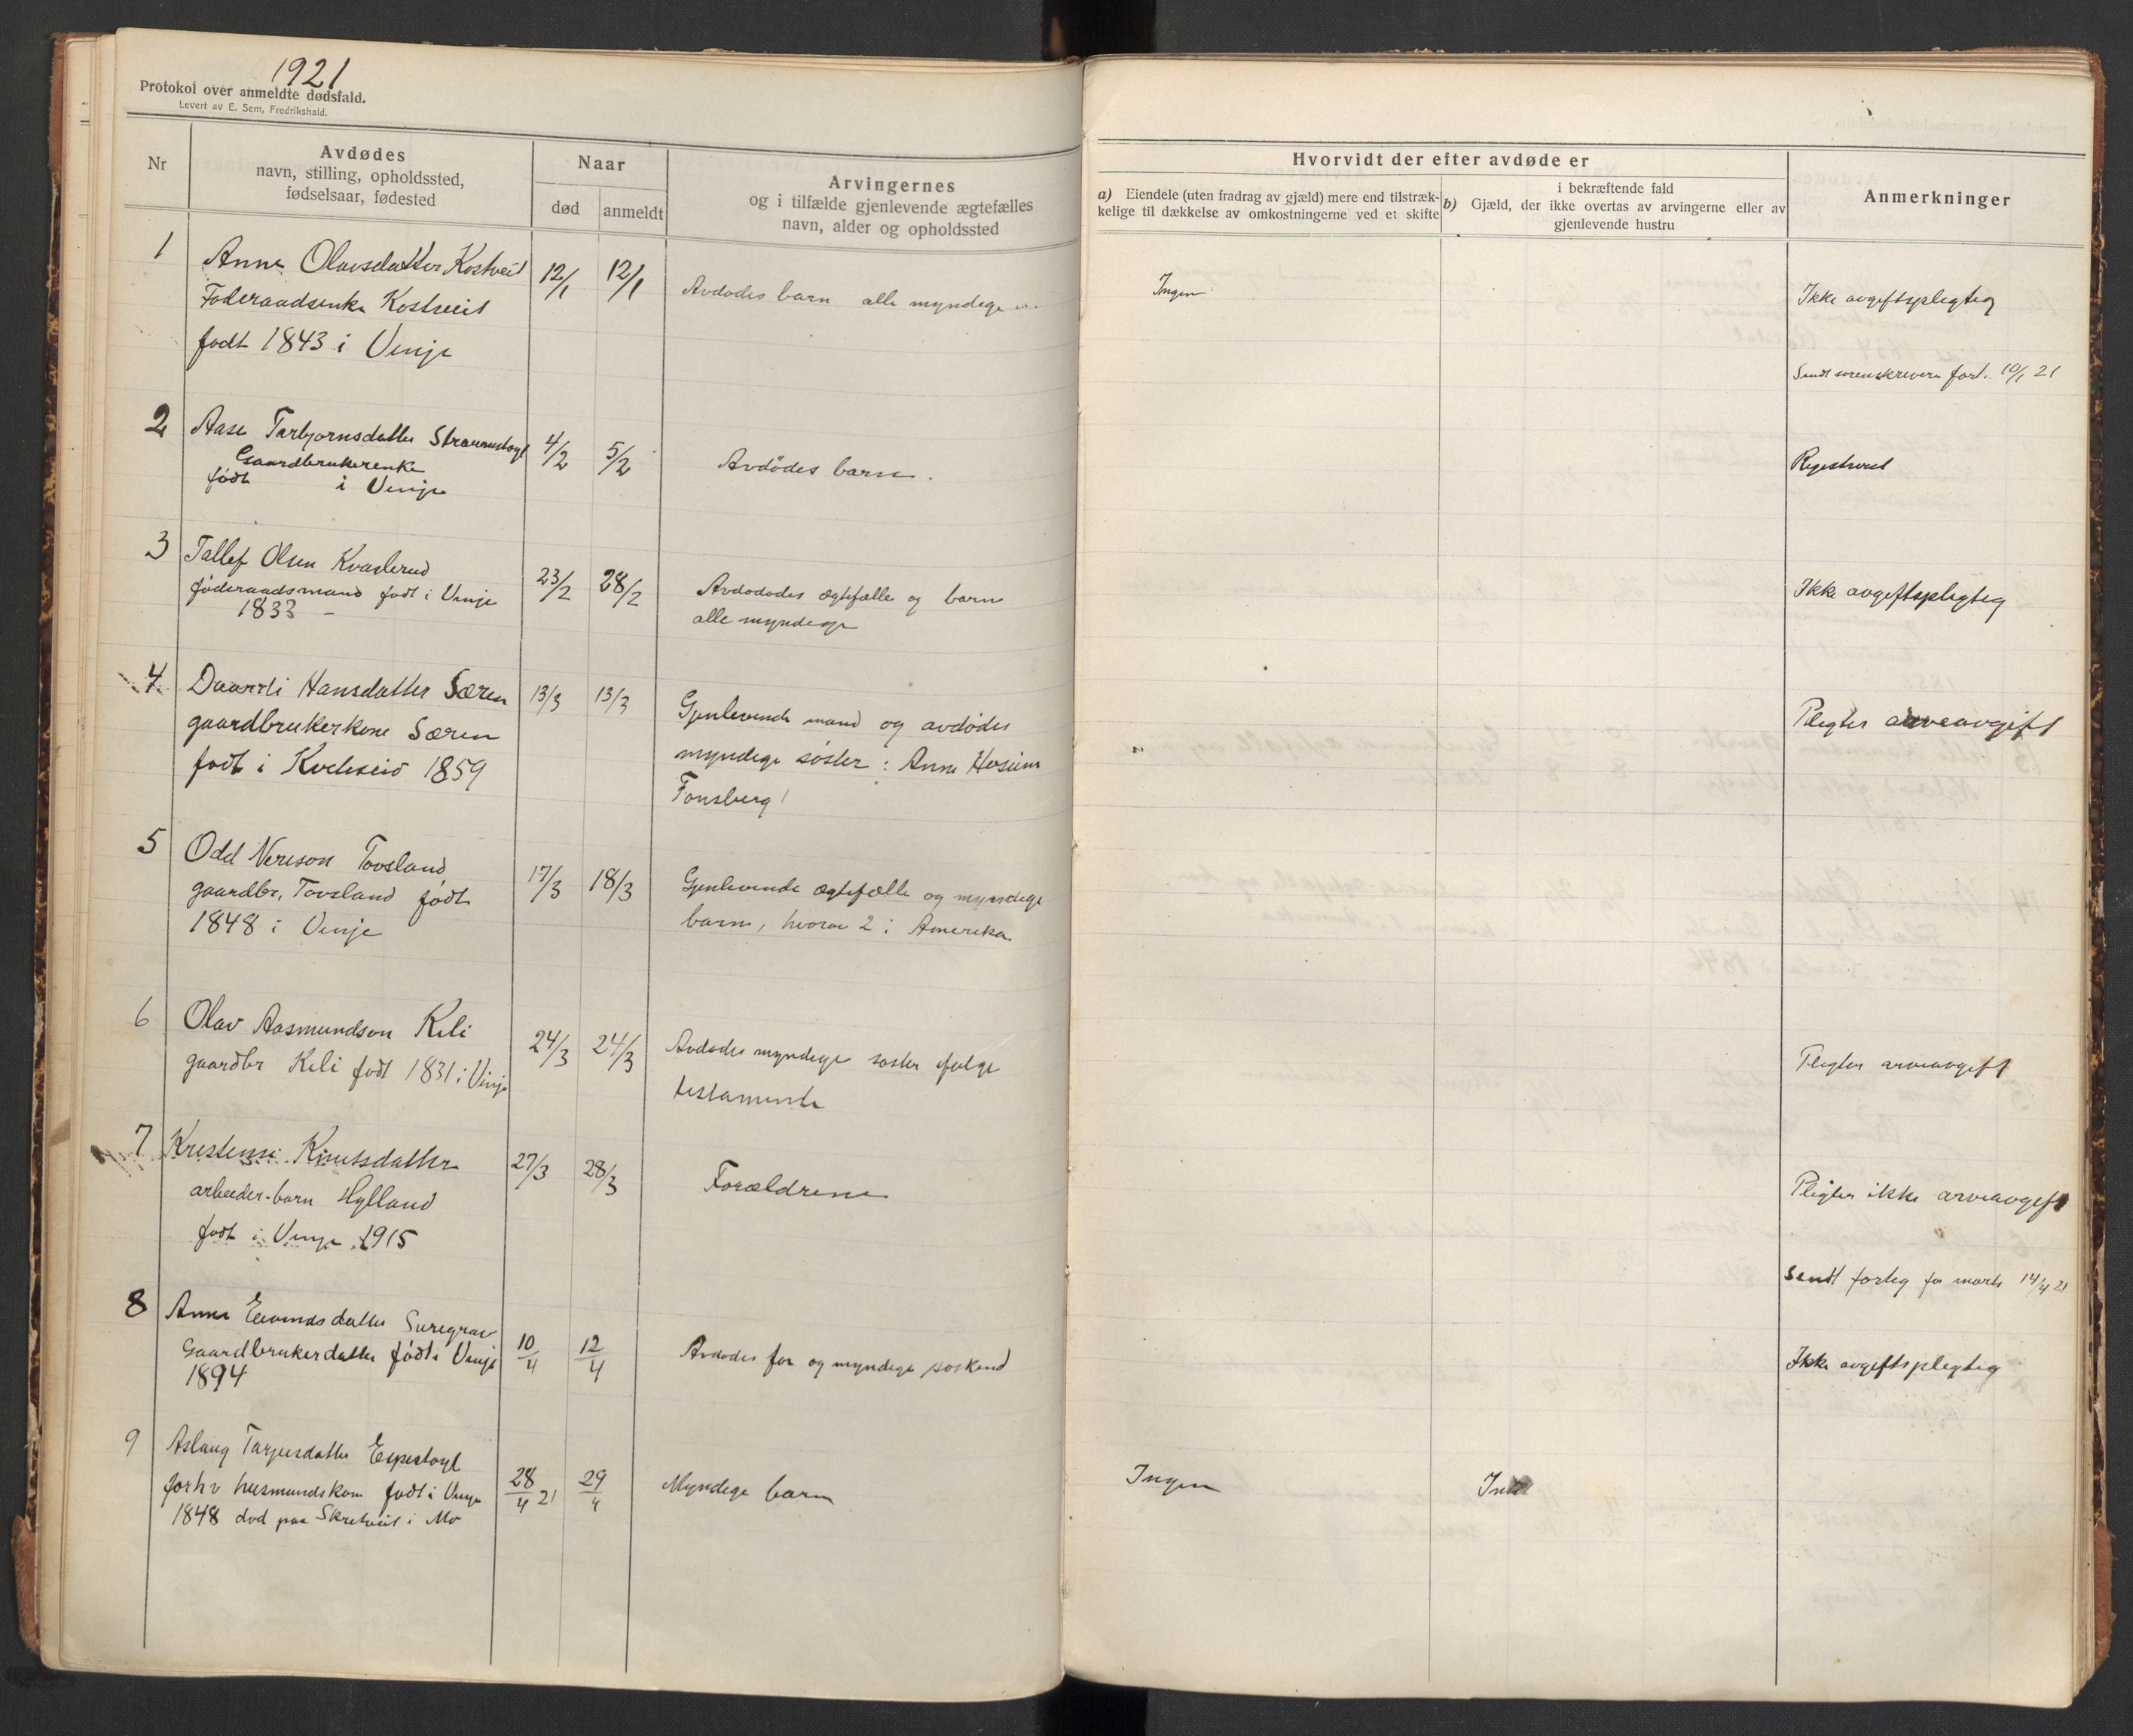 1921
Protokol over anmeldte dødsfald.
Levert av E. Sem, Fredrikshald.
Nr
Avdødes
navn, stilling, opholdssted,
fødselsaar, fødested
Naar
død
anmeldt
Arvingernes
og i tilfælde gjenlevende ægtefælles
navn, alder og opholdssted
Hvorvidt der efter avdøde er
a) Eiendele (uten fradrag av gjæld) mere end tilstræk-
kelige til dækkelse av omkostningerne ved et skifte
i bekræftende fald
b) Gjæld, der ikke overtas av arvingerne eller av
gjenlevende hustru
Anmerkninger
1 Anne Olavsdatter Kostveit 12/1 12/1 Avdødes barn alle myndige Ingen Ikke avgiftspligtig
Foderaadsenke Kostveit
født 1843 i Vinje
Sendt sorenskriveren fort. 10/1 21
2 Aase Tarbjørnsdatter 4/2 5/2 Avdødes barn. Registreret
Gaardbrukerenke
født i Vinje
3 Tallef Olsen Kvaslerud 23/2 28/2 Avdødes ægtefælle og barn Ikke avgiftspligtig
føderaadsmand født i Vinje alle myndige
1833 –
4 Hansdatter Særen 13/3 13/3 Gjenlevende mand og avdødes Pligter arveavgift
gaardbrukerkone Særen myndige søster: Anne
født i Kviteseid 1859 Tønsberg
5 Odd Nerison Tovsland 17/3 18/3 Gjenlevende ægtefælle og myndige
gaardbr. Tovsland født barn, hvorav 2 i Amerika
1848 i Vinje
6 Olav Aasmundson Keli 24/3 24/3 Avdødes myndige søster ifølge Pligter arveavgift
gaardbr Keli født 1831 i Vinje testamente
7 Kristensi Knutsdatter 27/3 28/3 Forældrene Pligter ikke arveavgift
arbeider-barn Hylland
født i Vinje 1915
Sendt forteg for marts 14/4 21
8 Anne Eivindsdatter Suregrav 10/4 12/4 Avdødes far og myndige søskend Ikke avgiftspligtig
Gaardbrukerdatter født i Vinje
1894
9 Aslaug Tarjeisdatter Espestøyl 28/4 21 29/4 Myndige barn Ingen
forhv husmandskone født i Vinje
1848 død paa Skretveit i Mo